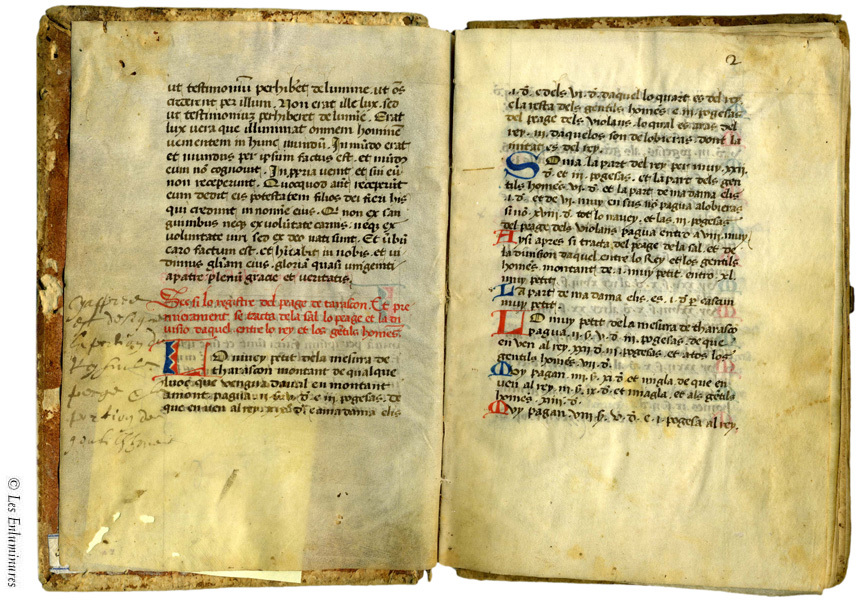 ut testimoniū perhibet de lumine. ut oēs
crederent per illum. Non erat ille lux. sed
ut testimoniū perhiberet de lumīe. Erat
lux vera que illuminat omnem hominē
venientem in hunc mundū. In mūdo erat
et mundus per ipsum factus est. et mūdus
eum nō cognouit. In ppria venit et sui eū
non receperunt. Quotquod autē receperūt
eum dedit eis potestatem filios dei fieri his
qui credunt in nomine eius. Qi non ex san
guinibus neqȝ ex volūtate carnis. neqȝ ex
voluntate viri. sed ex deo nati sunt. Et ūbū
caro factum est. et hītabit in nobis. et vi
dimus gliam eius. gloriā quasi unigeniti
a patre plenū gracie et veritatis.
So es lo registre del peage de tarascon. Et pre
mierament se tracta de la sal lo peage et la di
uisio daquel entre lo rey et los gētils homēs.
LO muey petit de la mesura de
tharascon montant de qualque
luoc que vengua daual en montant
amont pagua. ii. s. v. d. e. iii. pogesas. de
que en ven al rey. xxi. d. e a ma dama elis
2
.i. d. e dels vi. d. daquel lo quart es del rey
e la resta dels gentils homēs e. iii. pogesas
del peage dels violans. lo qual es aras del
rey. iii. daquelos son de lobieras. dont la
mitat es del rey.
SOma la part del rey per muy. xxii.
d. et. iii. pogesas. et la part dels gen
tils homēs. vi. d. et la part de ma dama elis
.i. d. et de vi. muy en sus nō pagua a lobieras
si nō. xviii. d. tot lo nauey. et las. iii. pogesas
del peage dels violans pagua entro a viii. muy
Aysi apres si tracta del peage de la sal. et de
la diuision daquel entre lo Rey et los gentils
homēs. montant de. i. muy petit. entro. xl.
muy petit.
LA part de ma dama elis. es. i. d. per cascun
muy petit.
LO muy petit de la mesura de tharasco
pagua. ii. s. v. d. iii. pogesas. de que
en ven al rey. xxii. d. iii. pogesas. et a tos los
gentils homēs. vii. d.
Moy pagan. iiii. s. xi. d. et miagla. de que en
ven al rey. iii. s. ix. d. et miagla. et als gētils
homēs. xiiii. d.
Moy pagan. viii. s. v. d. e. i. pogesa al rey.
© Les Enluminures